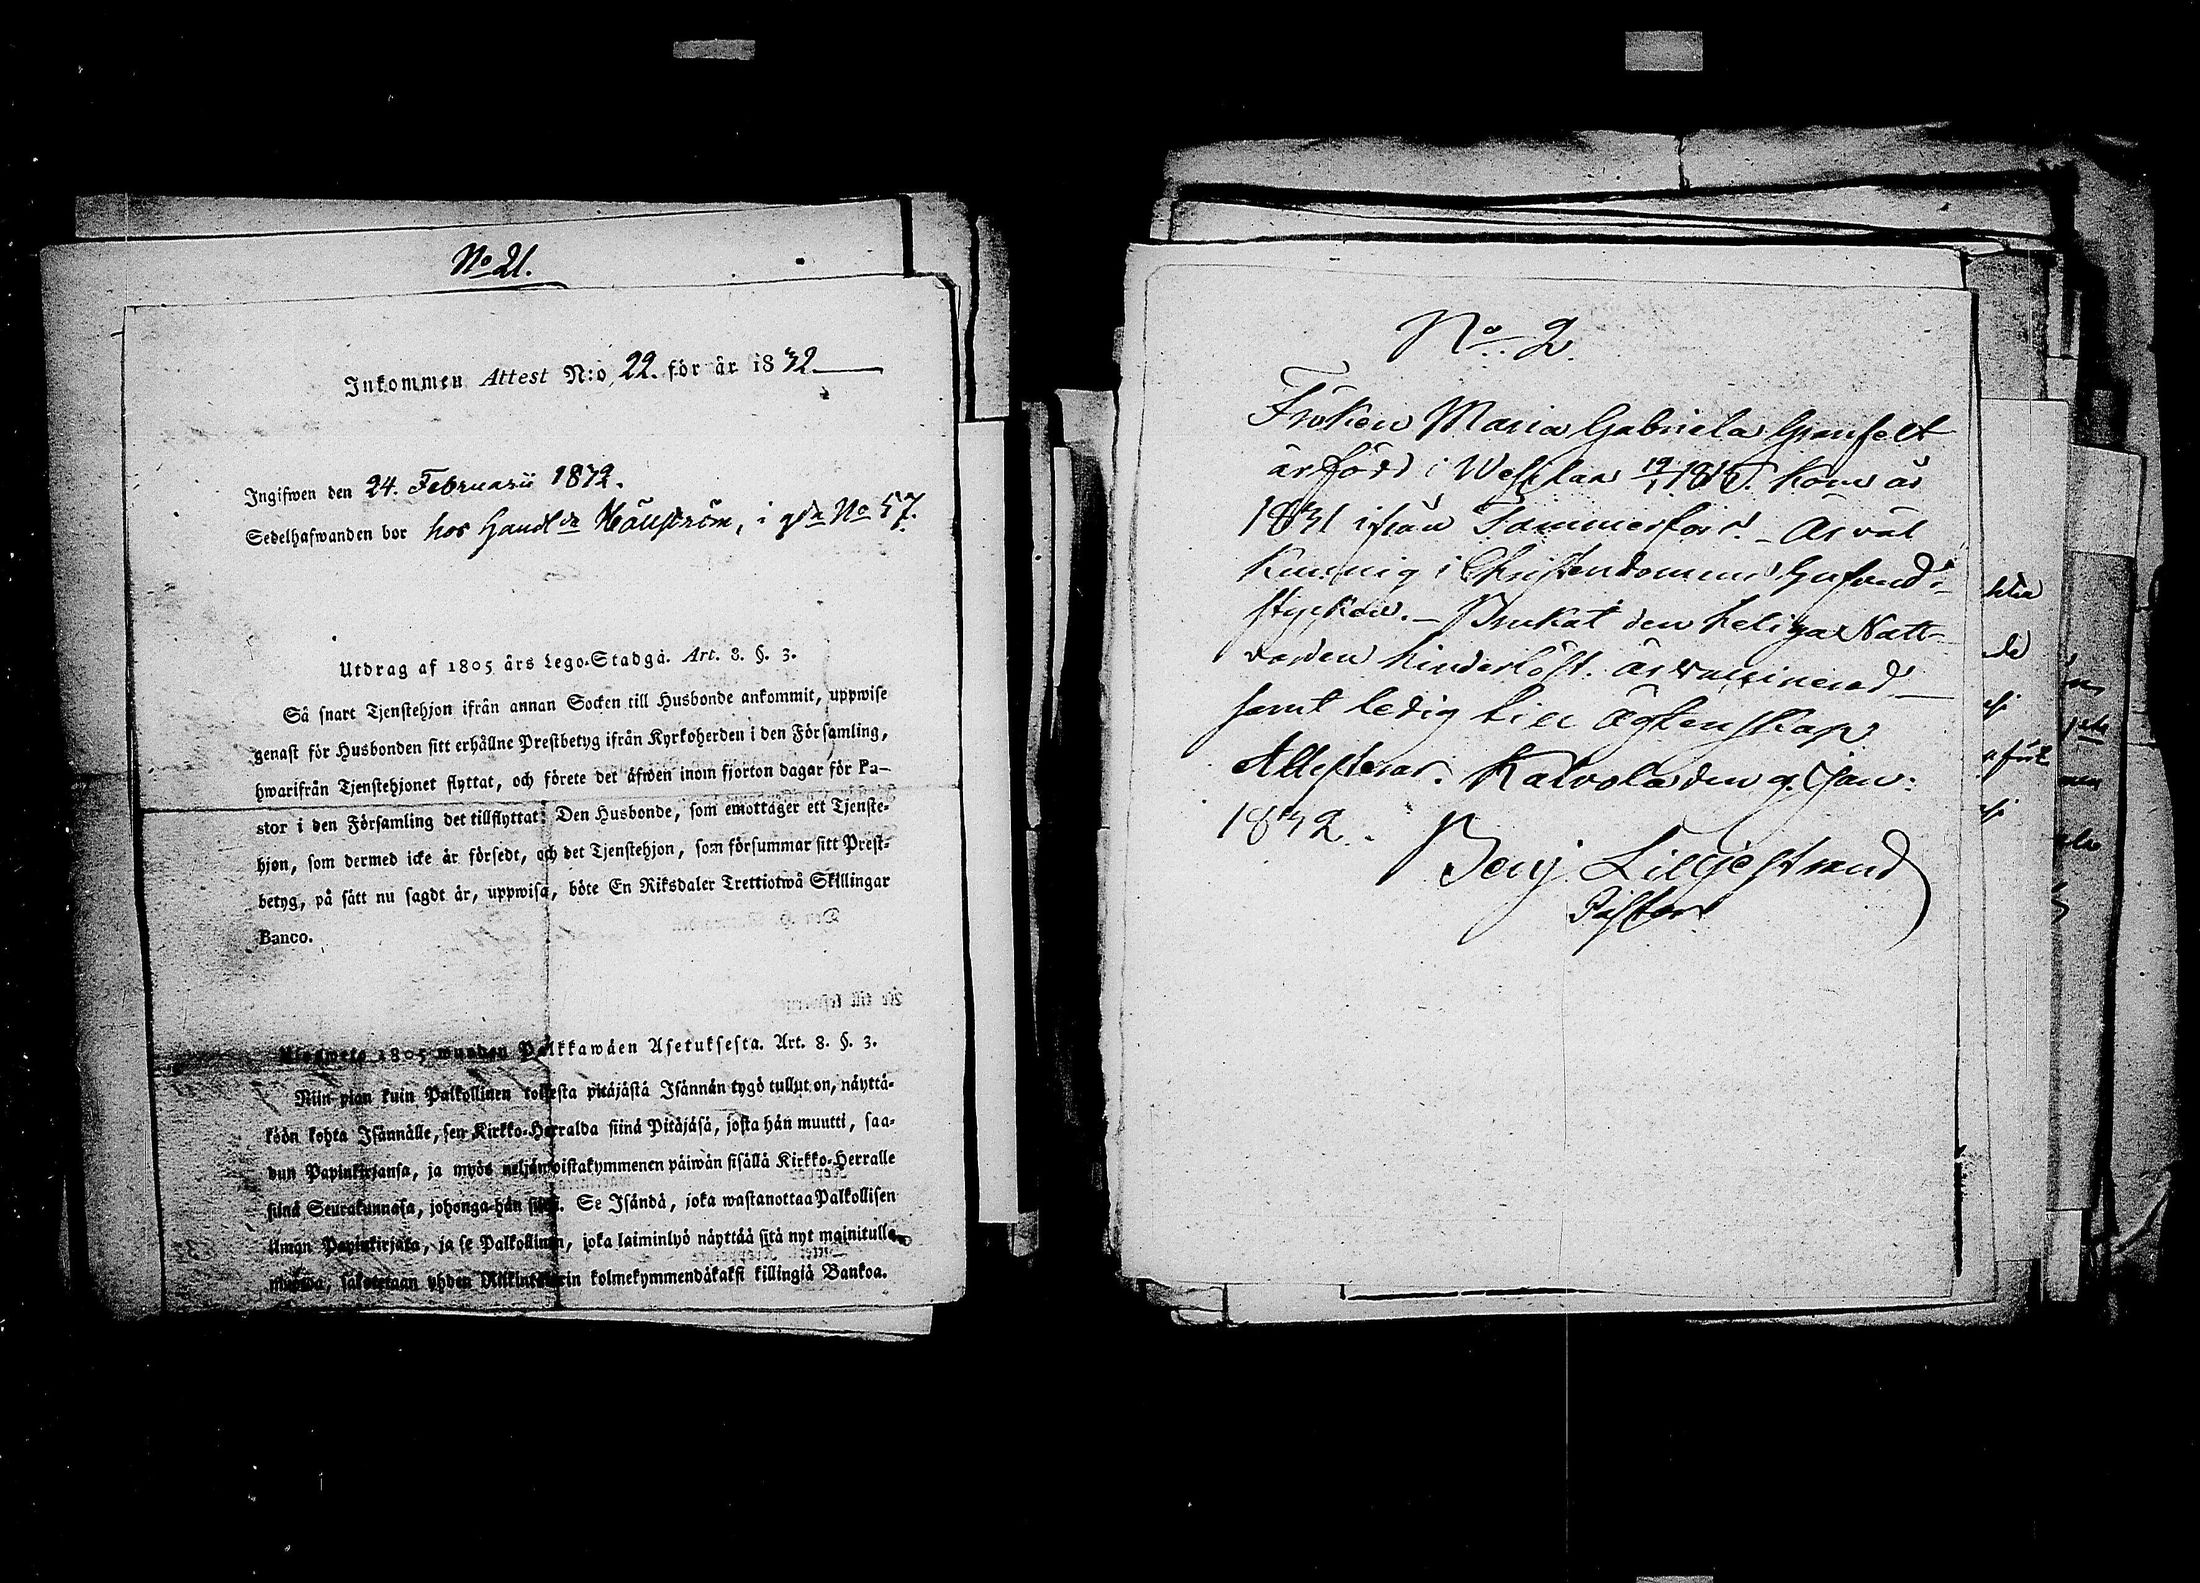 No 21.
Inkommen Attest N:o 22. för år 1832
Ingifwen den 24. Februarii 1832.
Sedelhafwanden bor hos Handl:n Hällström, i gd:n No 57.
Utdrag af 1805 års Lego-Stadga. Art. 8. §. 3.
Så snart Tjenstehjon ifrån annan Socken till Husbonde ankommit, uppwise
genast för Husbonden sitt erhållne Prestbetyg ifrån Kyrkoherden i den Församling,
hwarifrån Tjenstehjonet flyttat, och förete det äfwen inom fjorton dagar för Pa-
stor i den Församling det tillflyttat. Den Husbonde, som emottager ett Tjenste-
hjon, som dermed icke är försedt, och det Tjenstehjon, som försummar sitt Prest-
betyg, på sätt nu sagdt är, uppwisa, böte En Riksdaler Trettiotwå Skillingar
Banco.
1805 wuoden Palkkawäen Asetuksesta. Art. 8. §. 3.
Niin pian kuin Palkollinen toisesta pitäjästä Isännän tygö tullut on, näyttä-
köön kohta Isännälle, sen Kirkko-Herralda siinä Pitäjäsä, josta hän muutti, saa-
dun Papinkirjansa, ja myös neljäntoistakymmenen päiwän sisällä Kirkko-Herralle
siinä Seurakunnasa, johonga hän siirsi. Se Isändä, joka wastanottaa Palkollisen
ilman Papinkirjata, ja se Palkollinen, joka laiminlyö näyttää sitä nyt mainitulla
muotoa, sakotetaan yhden Riikintalarin kolmekymmendäkaksi killingiä Bankoa.
No 2.
Fröken Maria Gabriela Granfelt
är född i Wesilax 19/1 1815. kom år
1831 ifrån Tammerfors. - Är väl
kunnig i Christendomens Hufvud-
stycken. - Brukat den heliga Natt-
varden hinderlöst. är vaccinerad
samt ledig till Ägtenskap
Attesterar. Kalvola den 9. Jan:
1832.
Benj. Lilljestrand
Pastor